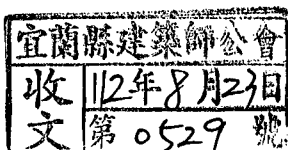 宜蘭縣建築師公會
收文
112年8月23日
第0529號